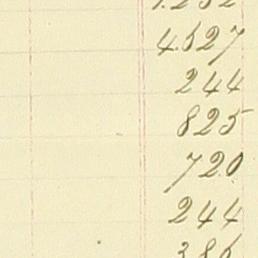 1.232
4.527
244
825
720
244
386